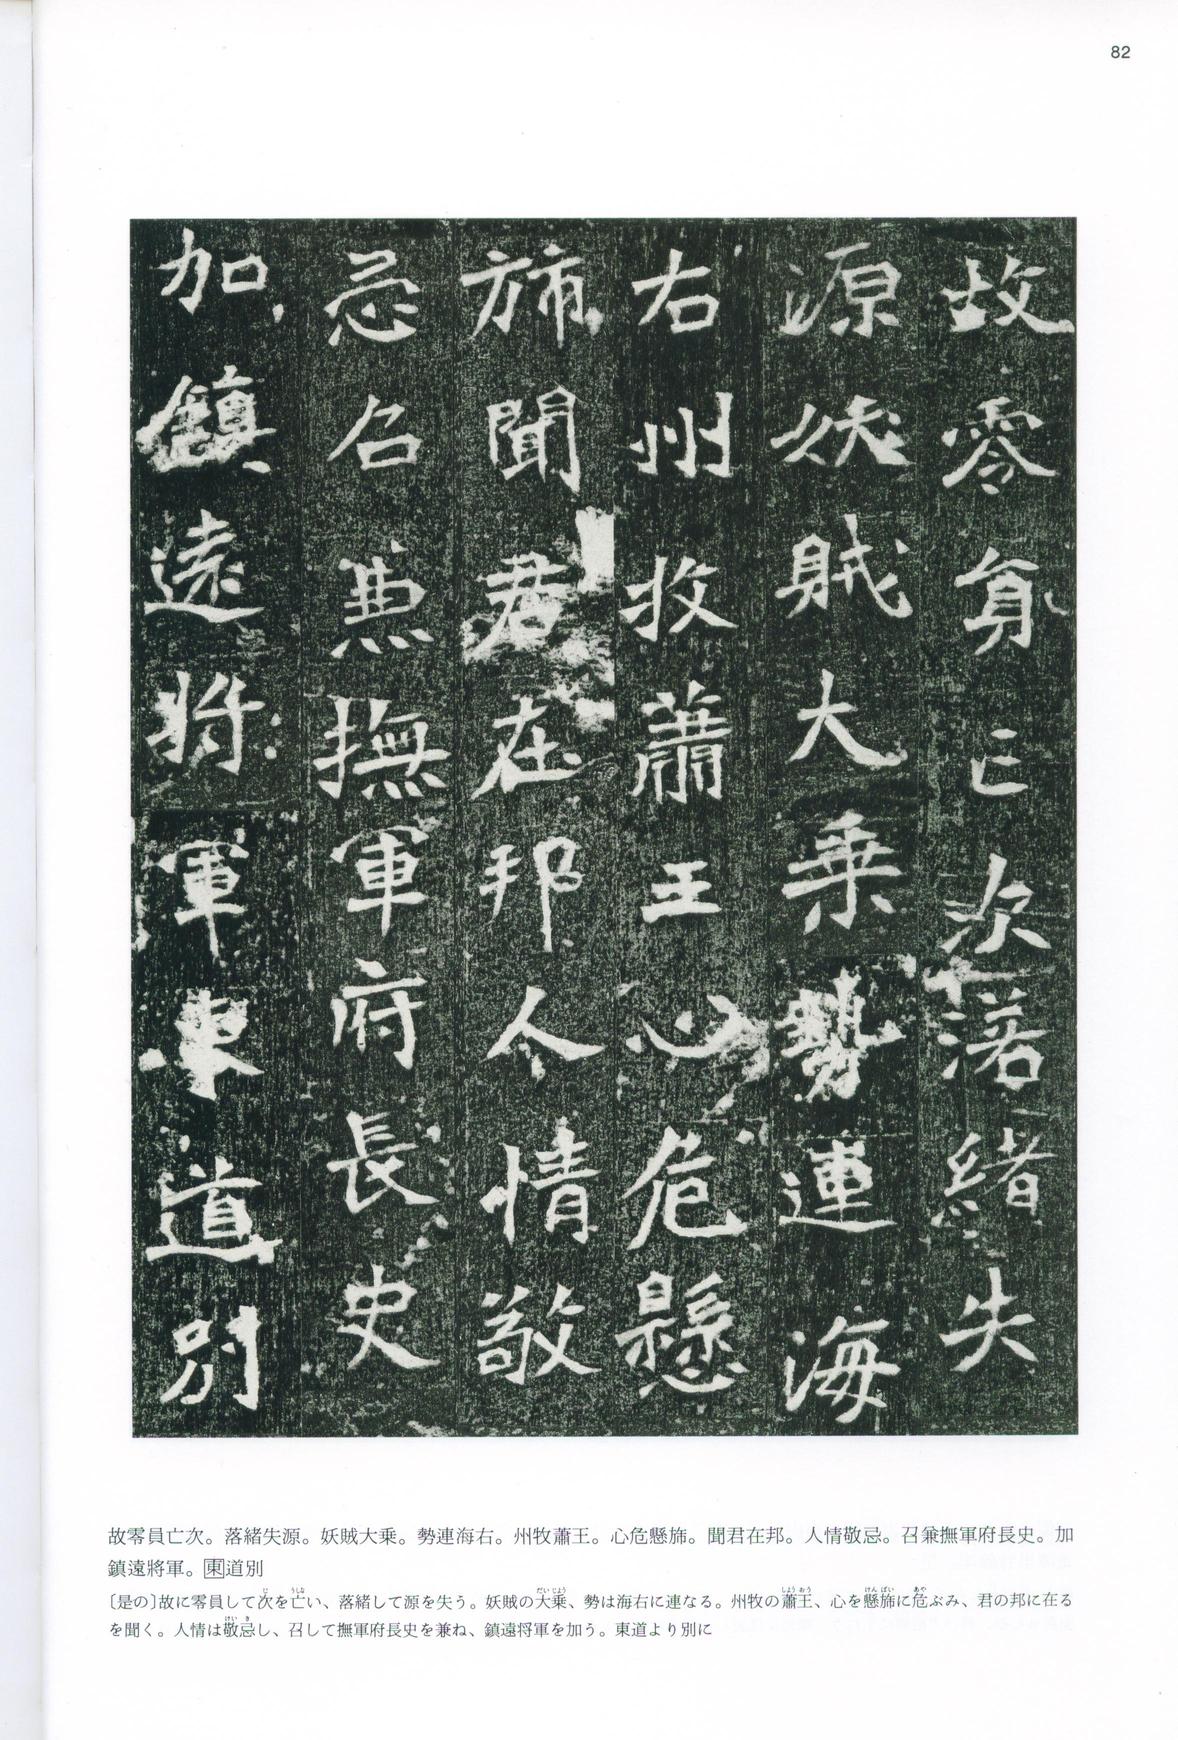 82
故零員亡次落緒失
源妖賊大乗勢連海
右州牧蕭王心危懸
斾聞君在邦人情敬
忌召兼撫軍府長史
加鎮遠將軍東道別
故零員亡次。落緒失源。妖賊大乗。勢連海右。州牧蕭王。心危懸斾。聞君在邦。人情敬忌。召兼撫軍府長史。加
鎮遠將軍。東道別
〔是の〕故に零員して次を亡い、落緒して源を失う。妖賊の大乗、勢は海右に連なる。州牧の蕭王、心を懸斾に危ぶみ、君の邦に在る
を聞く。人情は敬忌し、召して撫軍府長史を兼ね、鎮遠将軍を加う。東道より別に